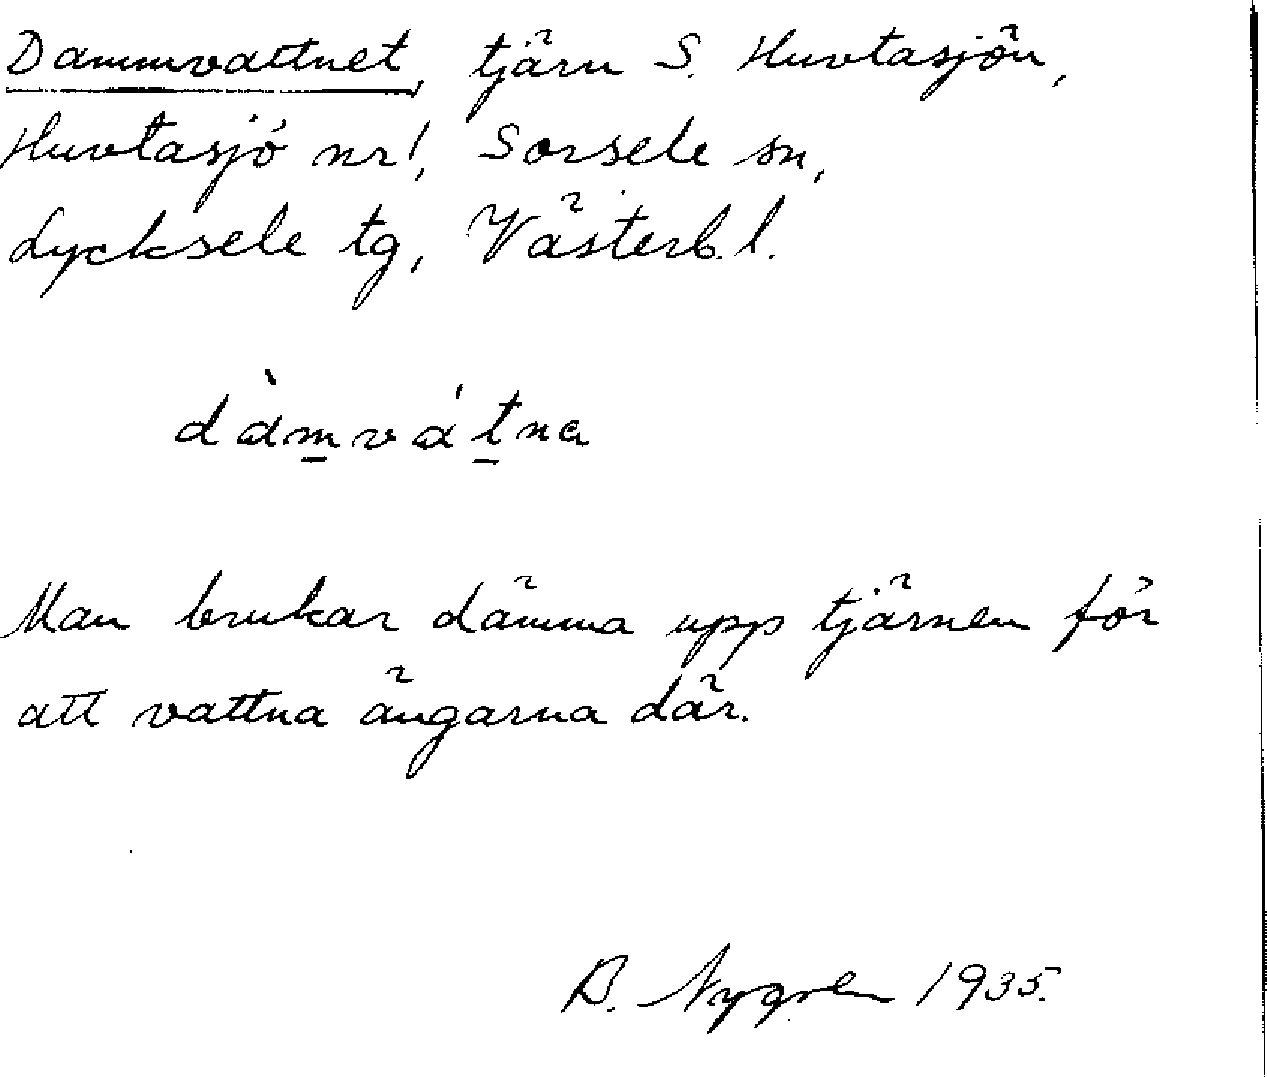 Dammvattnet, tjärn S. Huvtasjön,
Huvtasjö nr 1, Sorsele sn,
Lycksele tg, Västerb. l.
dàm̲vát̲na
Man brukar dämma upp tjärnen för
att vattna ängarna där.
B. Nygren 1935.